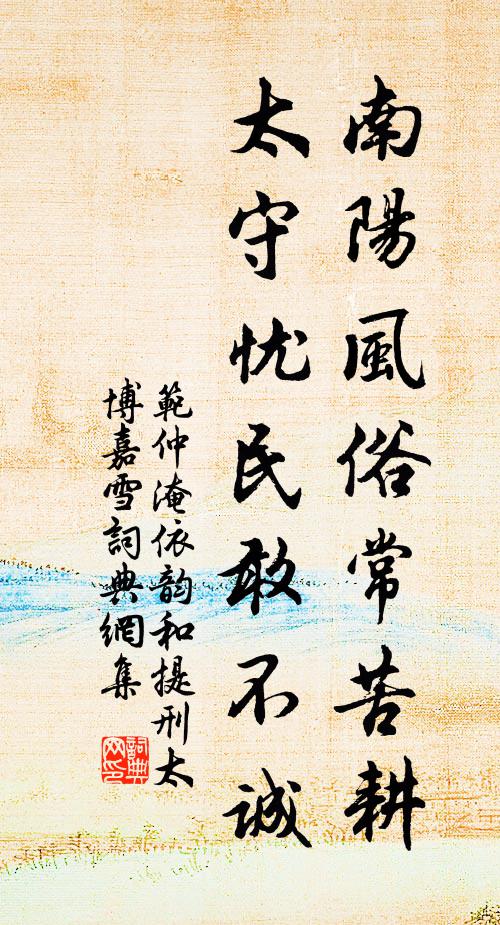 南陽風俗常苦耕
太守忧民敢不誠
範仲淹依韵和提刑太
博嘉雪詞典網集
詞典網印